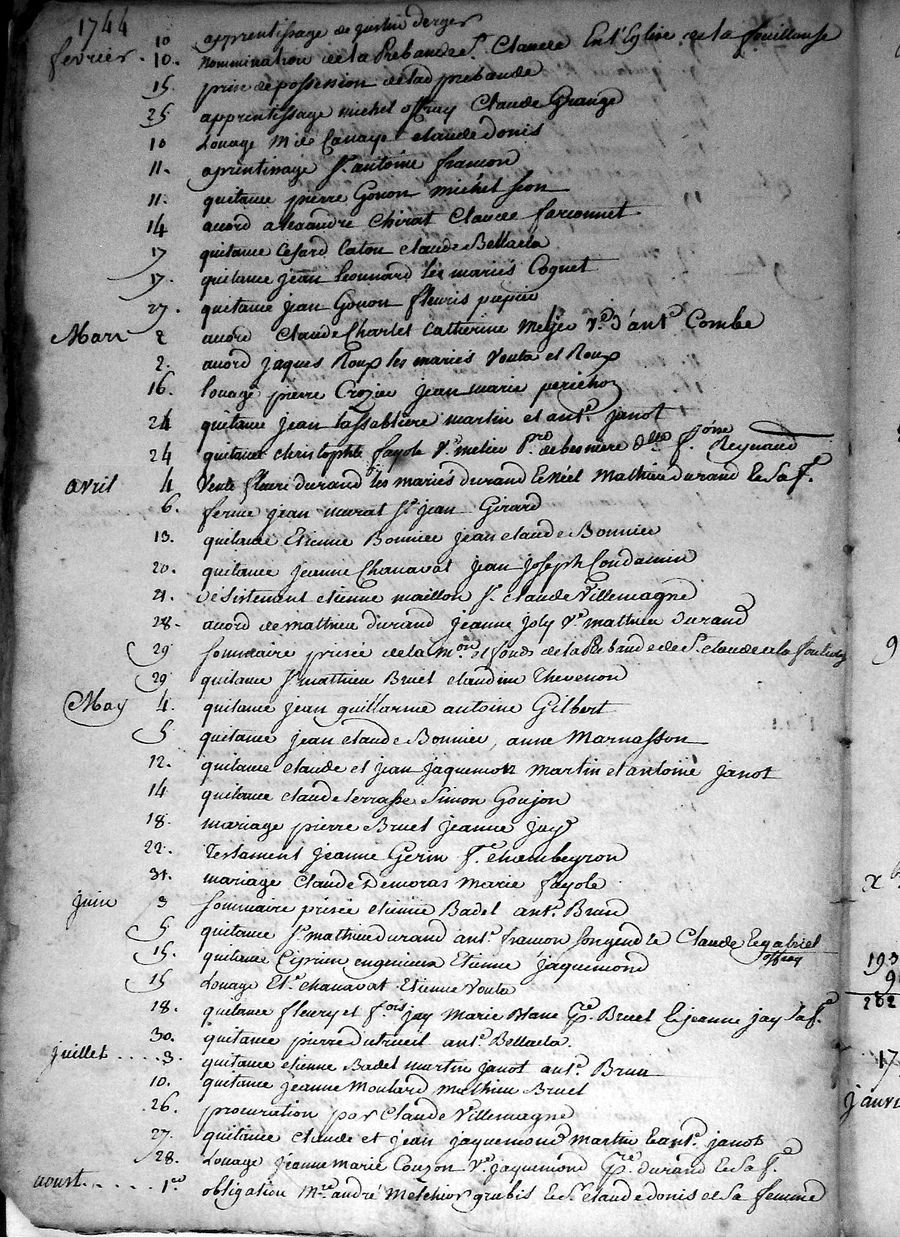 1744
10 apprentissage de justin derger
fevrier . 10. Nommination de la Prebande St. Claude En l'Eglise de la fouillouse
15. prise de possession de lad prebande
25 apprentissage michel offray Claude Grange
10 Louage M de Canaye claude donis
11. aprentissage St. antoine framon
11. quitance pierre Gonon michel
14 acord alexandre Chirat Claude farconnet
17 quitance Cesard Caton claude Bellacla
17. quitance jean leonnard les mariés Cognet
27. quitance jean Gonon fleuris pupie
Mars 2 acord Claude Charlet Catherine ve. d'ant. Combe
2. acord jaques Roux les mariés Vouta et Roux
16. louage pierre Crozier jean marie perichon
24 quitance jean lassabliere martin et ant. janot
24 quitance christophle fayole Ve. melier de besnere Reynaud
avril 4 Vente fleuri durand les mariés durand Mathieu durand et Sa f.
6. ferme jean marat St. jean Girard
13. quitance Etienne Bonnier jean claude Bonnier
20. quitance jeanne Chanavat jean joseph Condamin
21. desistement etienne maillon Sr. claude Villemagne
28. acord de mathieu durand jeanne joly ve. mathieu durand
29 sommaire prisée de la mon. et fonds de la Prebande de St. claude de la fouillouse
29. quitance Sr. mathieu Bruel claudine thevenon
May 4. quitance jean guillarme antoine Gilbert
5 quitance jean claude Bonnier, anne Marnasson
12. quitance claude et jean jaquemon martin et antoine janot
14 quitance claude terrasse Simon Goujon
18. mariage pierre Bruel jeanne jay
22. testament jeanne Gerin f. chambeyron
31. mariage Claude Demoras Marie fayole
juin 3 sommaire prisée etienne Badel ant. Brun
5 quitance Sr. mathieu durand ant. framon Claude et gabriel offray
15. quitance Ciprien engenieux Etienne jaquemond
15 Louage Et. chanavat Etienne Vouta
18. quitance fleury et fois. jay Marie Blanc Pre. Bruel et jeanne jay Sa f.
30. quitance pierre dutreuil ant. Bellacla.
juillet .... 3. quitance etienne Badel martin janot ant. Brun
10. quitance jeanne Moulard mathieu Bruel
26. procuration par Claude Villemagne
27. quitance claude et jean jaquemond martin et ant. janot
28. Louage jeanne marie Couzon Ve. jaquemond Pre. durand et Sa fe.
aoust. .... 1er obligation Mre. andré Melchior grubis et Sr. claude donis et Sa femme
193
17
janvi